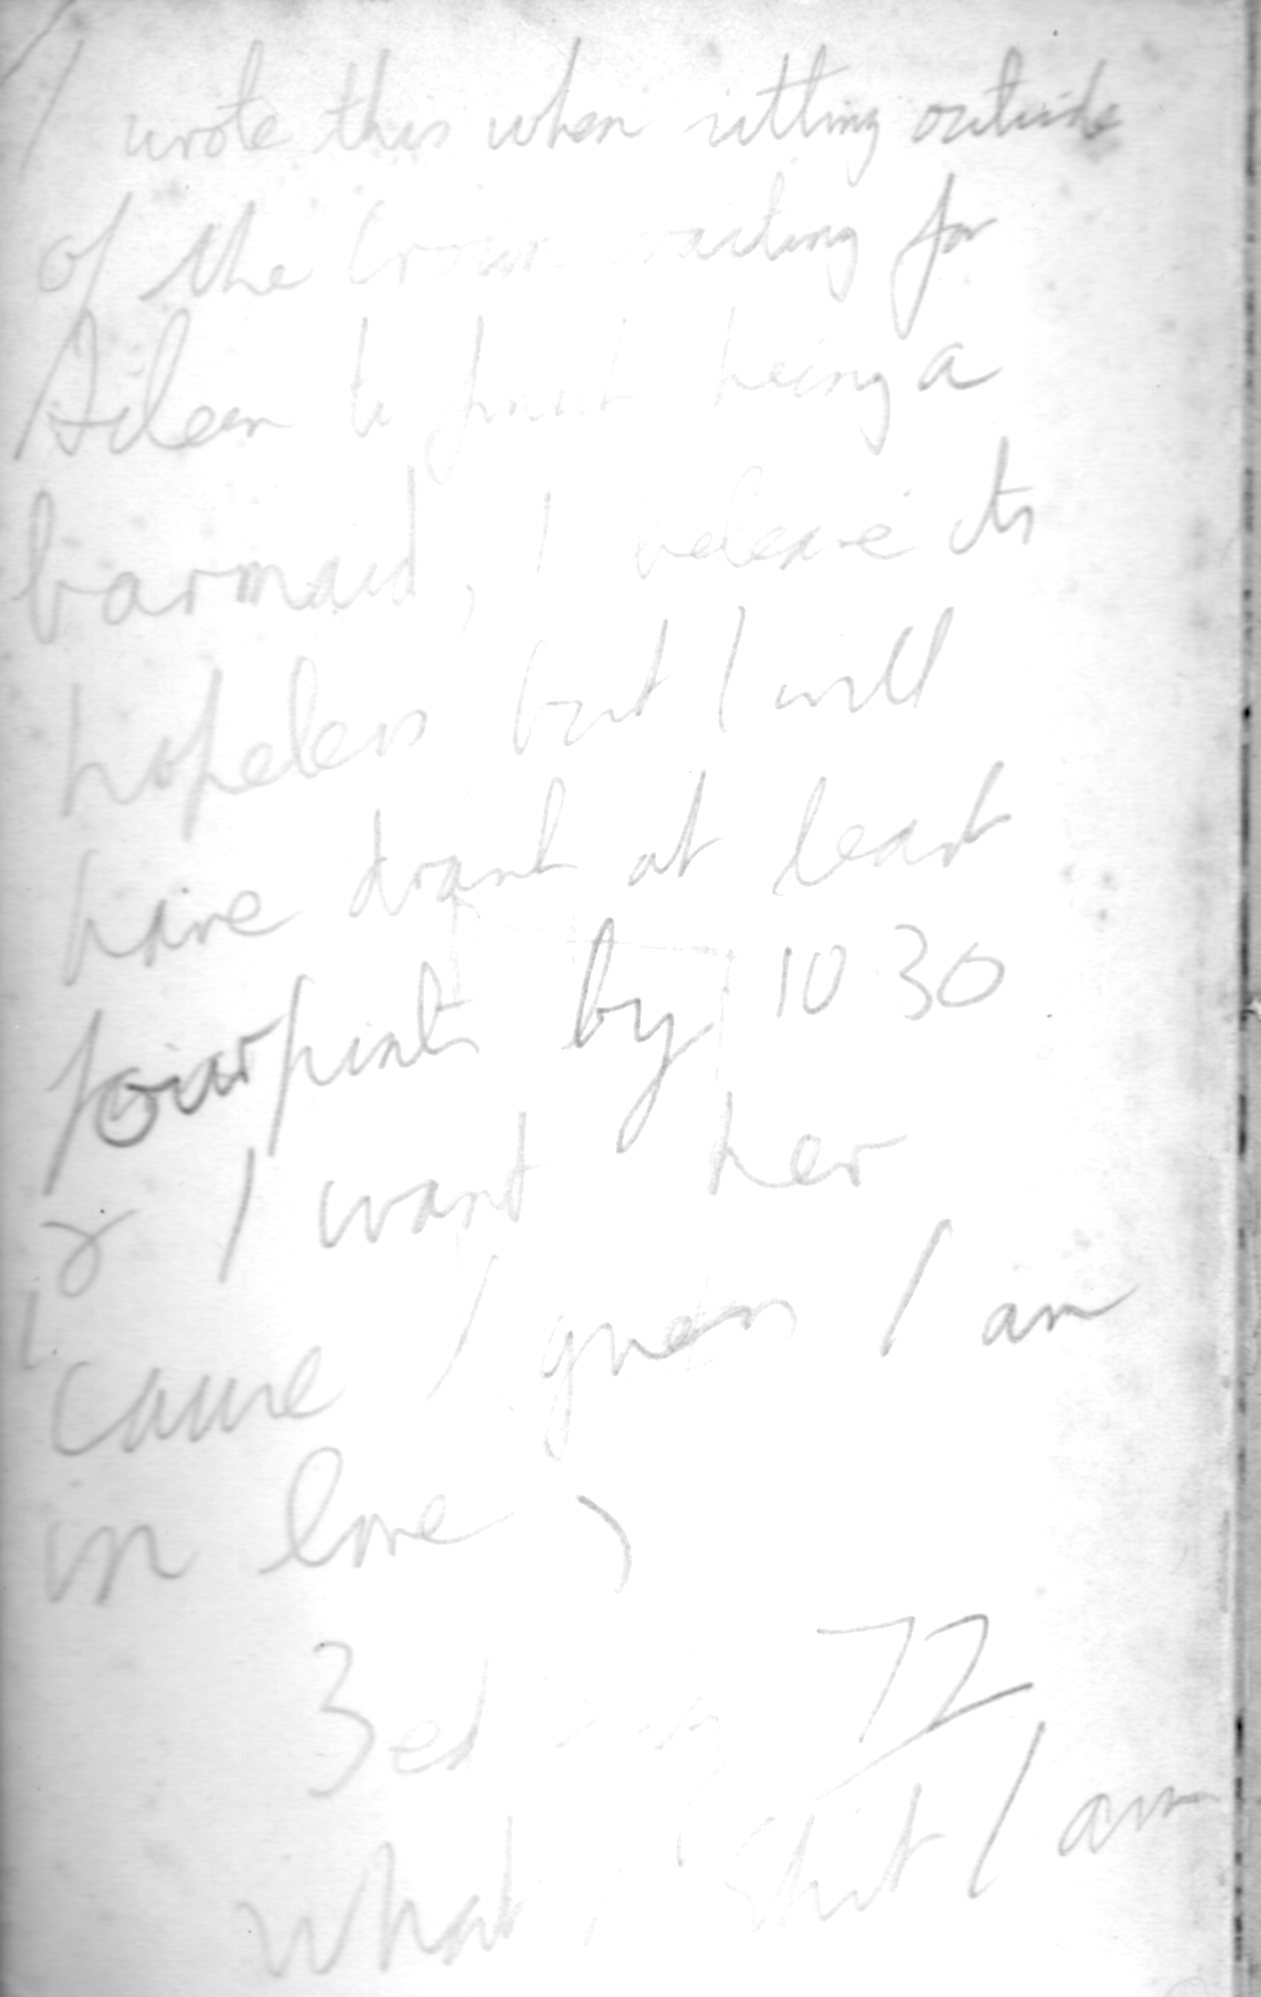 I wrote this when sitting outside
of the Crown waiting for
Aileen to finish being a
barmaid, I beleave its
hopeless but I will
have drank at least
four pints by 10 30
& I want her
'cause I guess I am
in love)
72
What shit I am